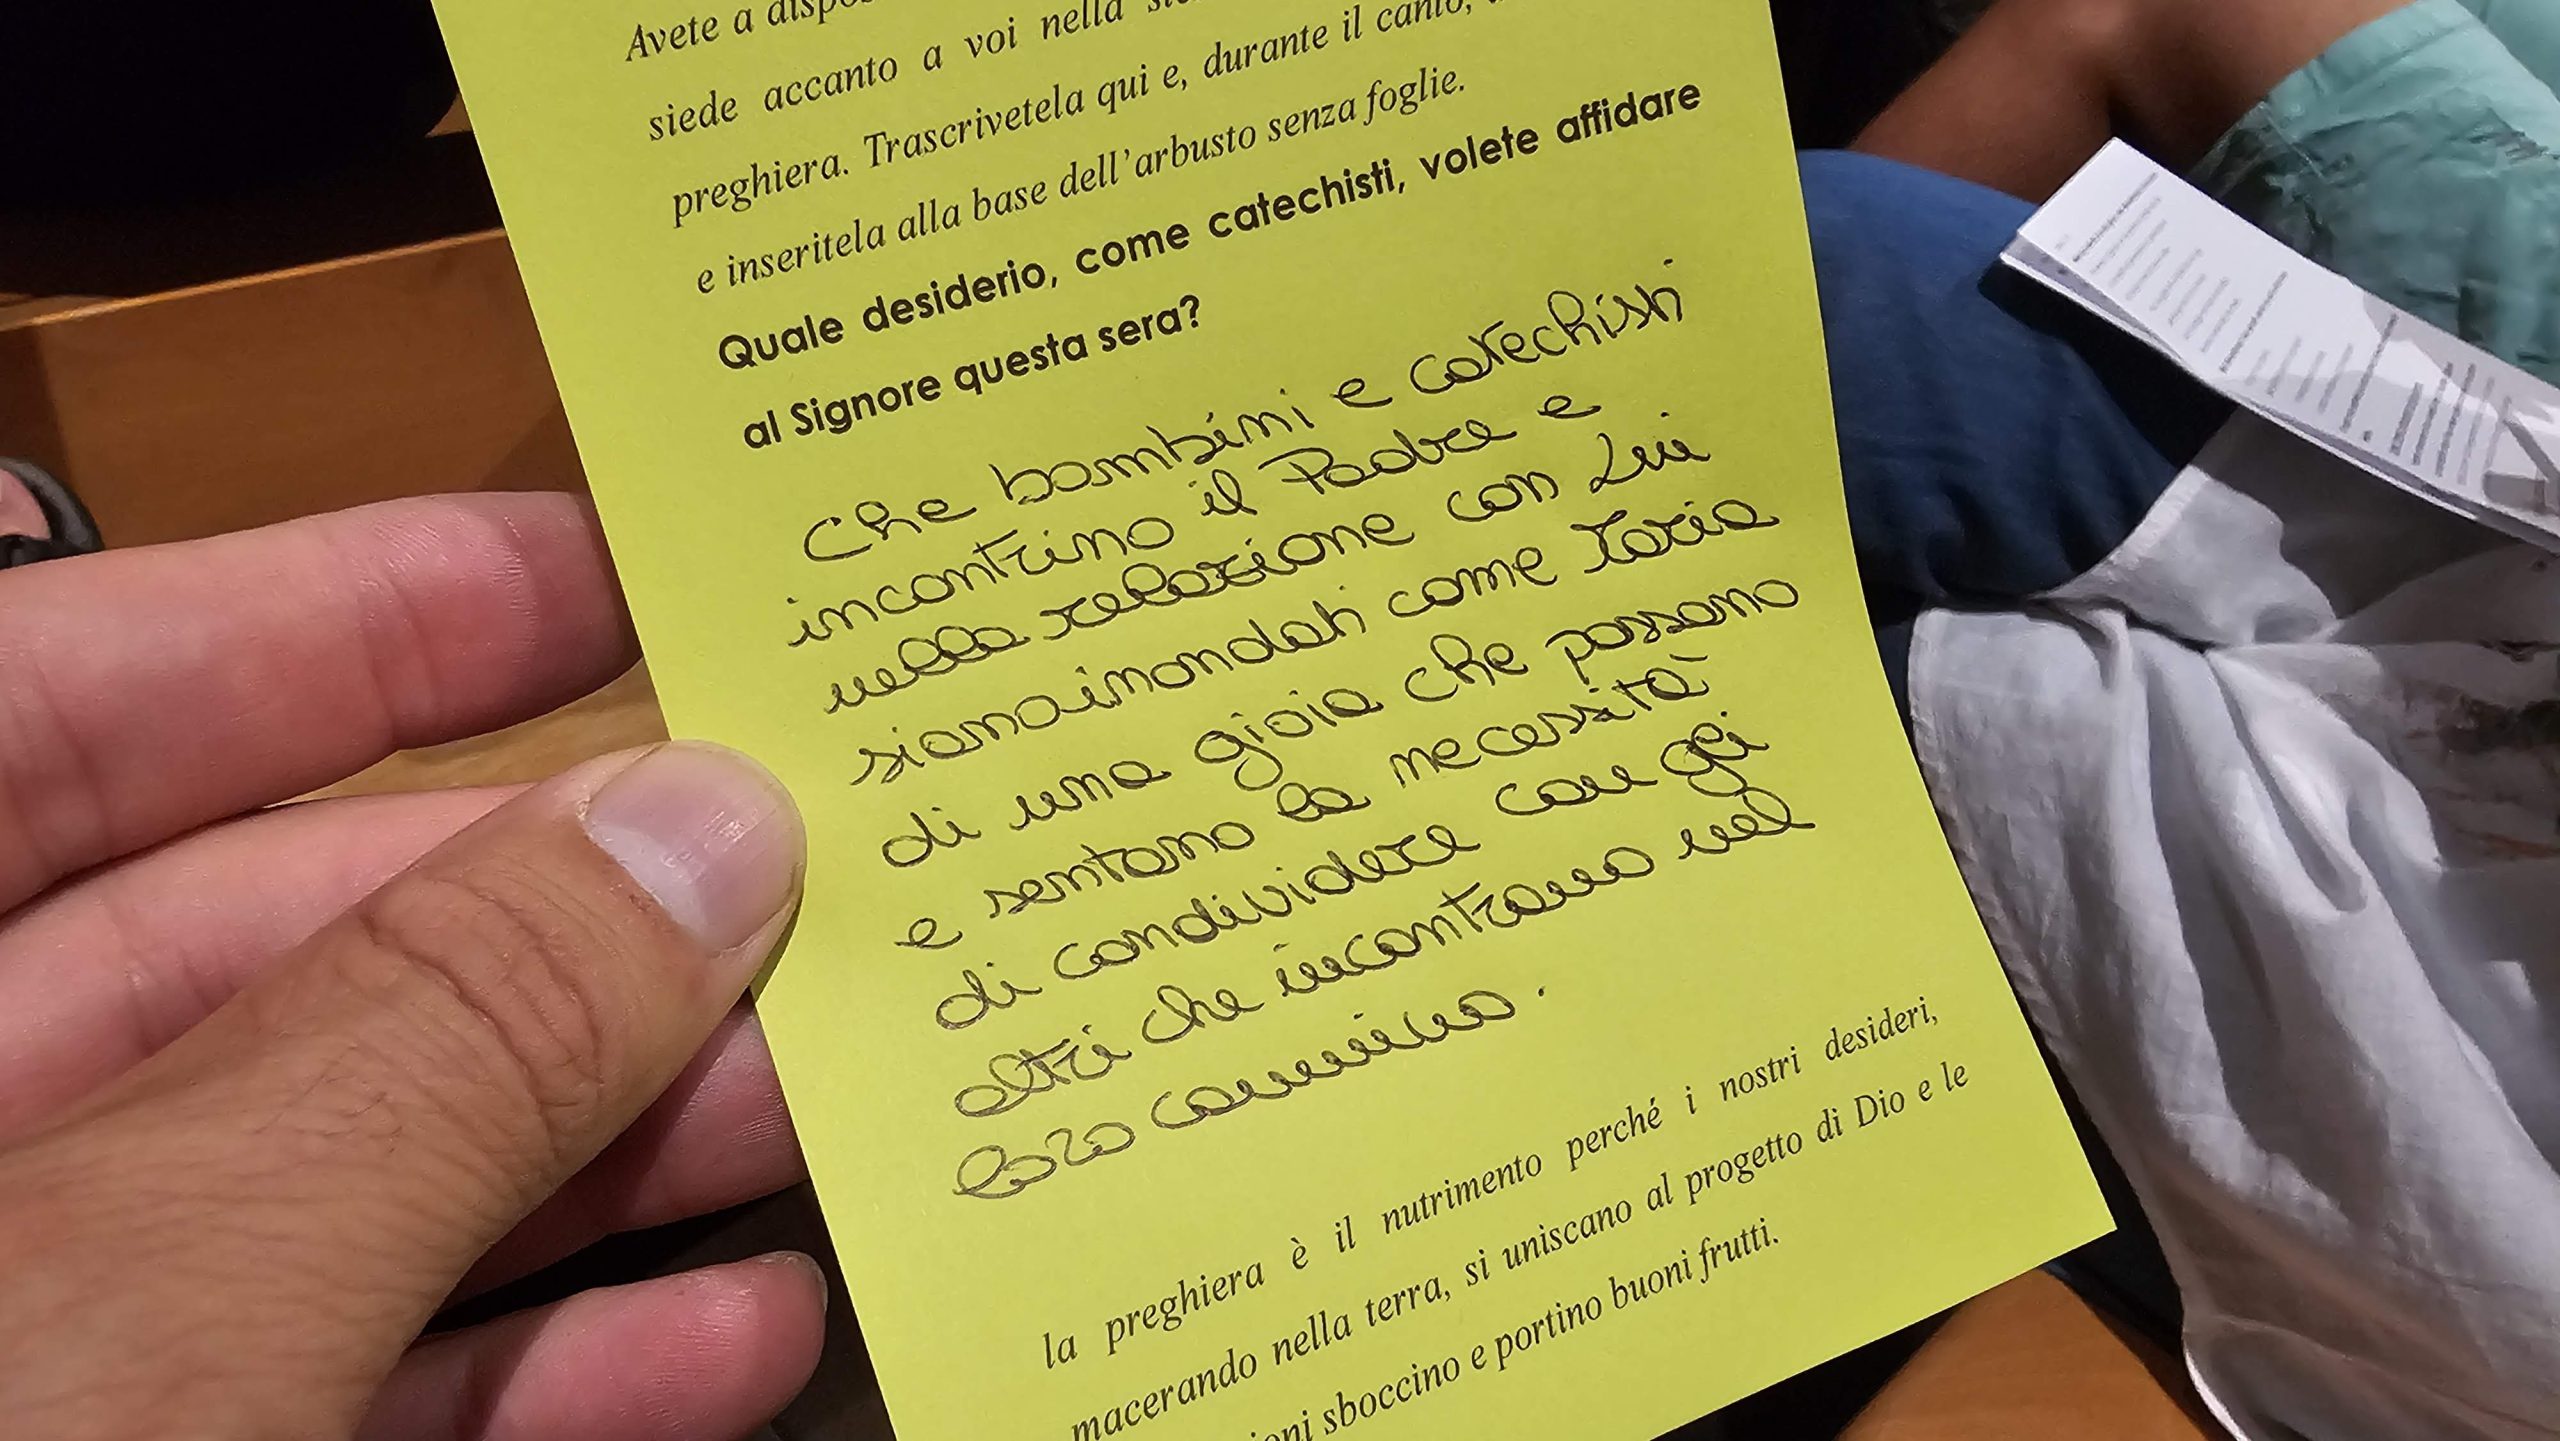 Avete a
siede accanto a voi nella
preghiera. Trascrivetela qui e, durante il canto,
e inseritela alla base dell'arbusto senza foglie.
Quale desiderio, come catechisti, volete affidare
al Signore questa sera?
Che bambini e catechisti
incontrino il Padre e
nella relazione con Lui
siano inondati come Maria
di una gioia che possano
e sentano la necessità
di condividere con gli
altri che incontrano nel
loro cammino.
la preghiera è il nutrimento perché i nostri desideri,
macerando nella terra, si uniscano al progetto di Dio e le
sboccino e portino buoni frutti.